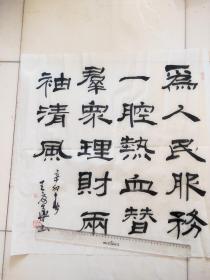 爲人民服務
一腔熱血替
羣衆理財兩
袖清風